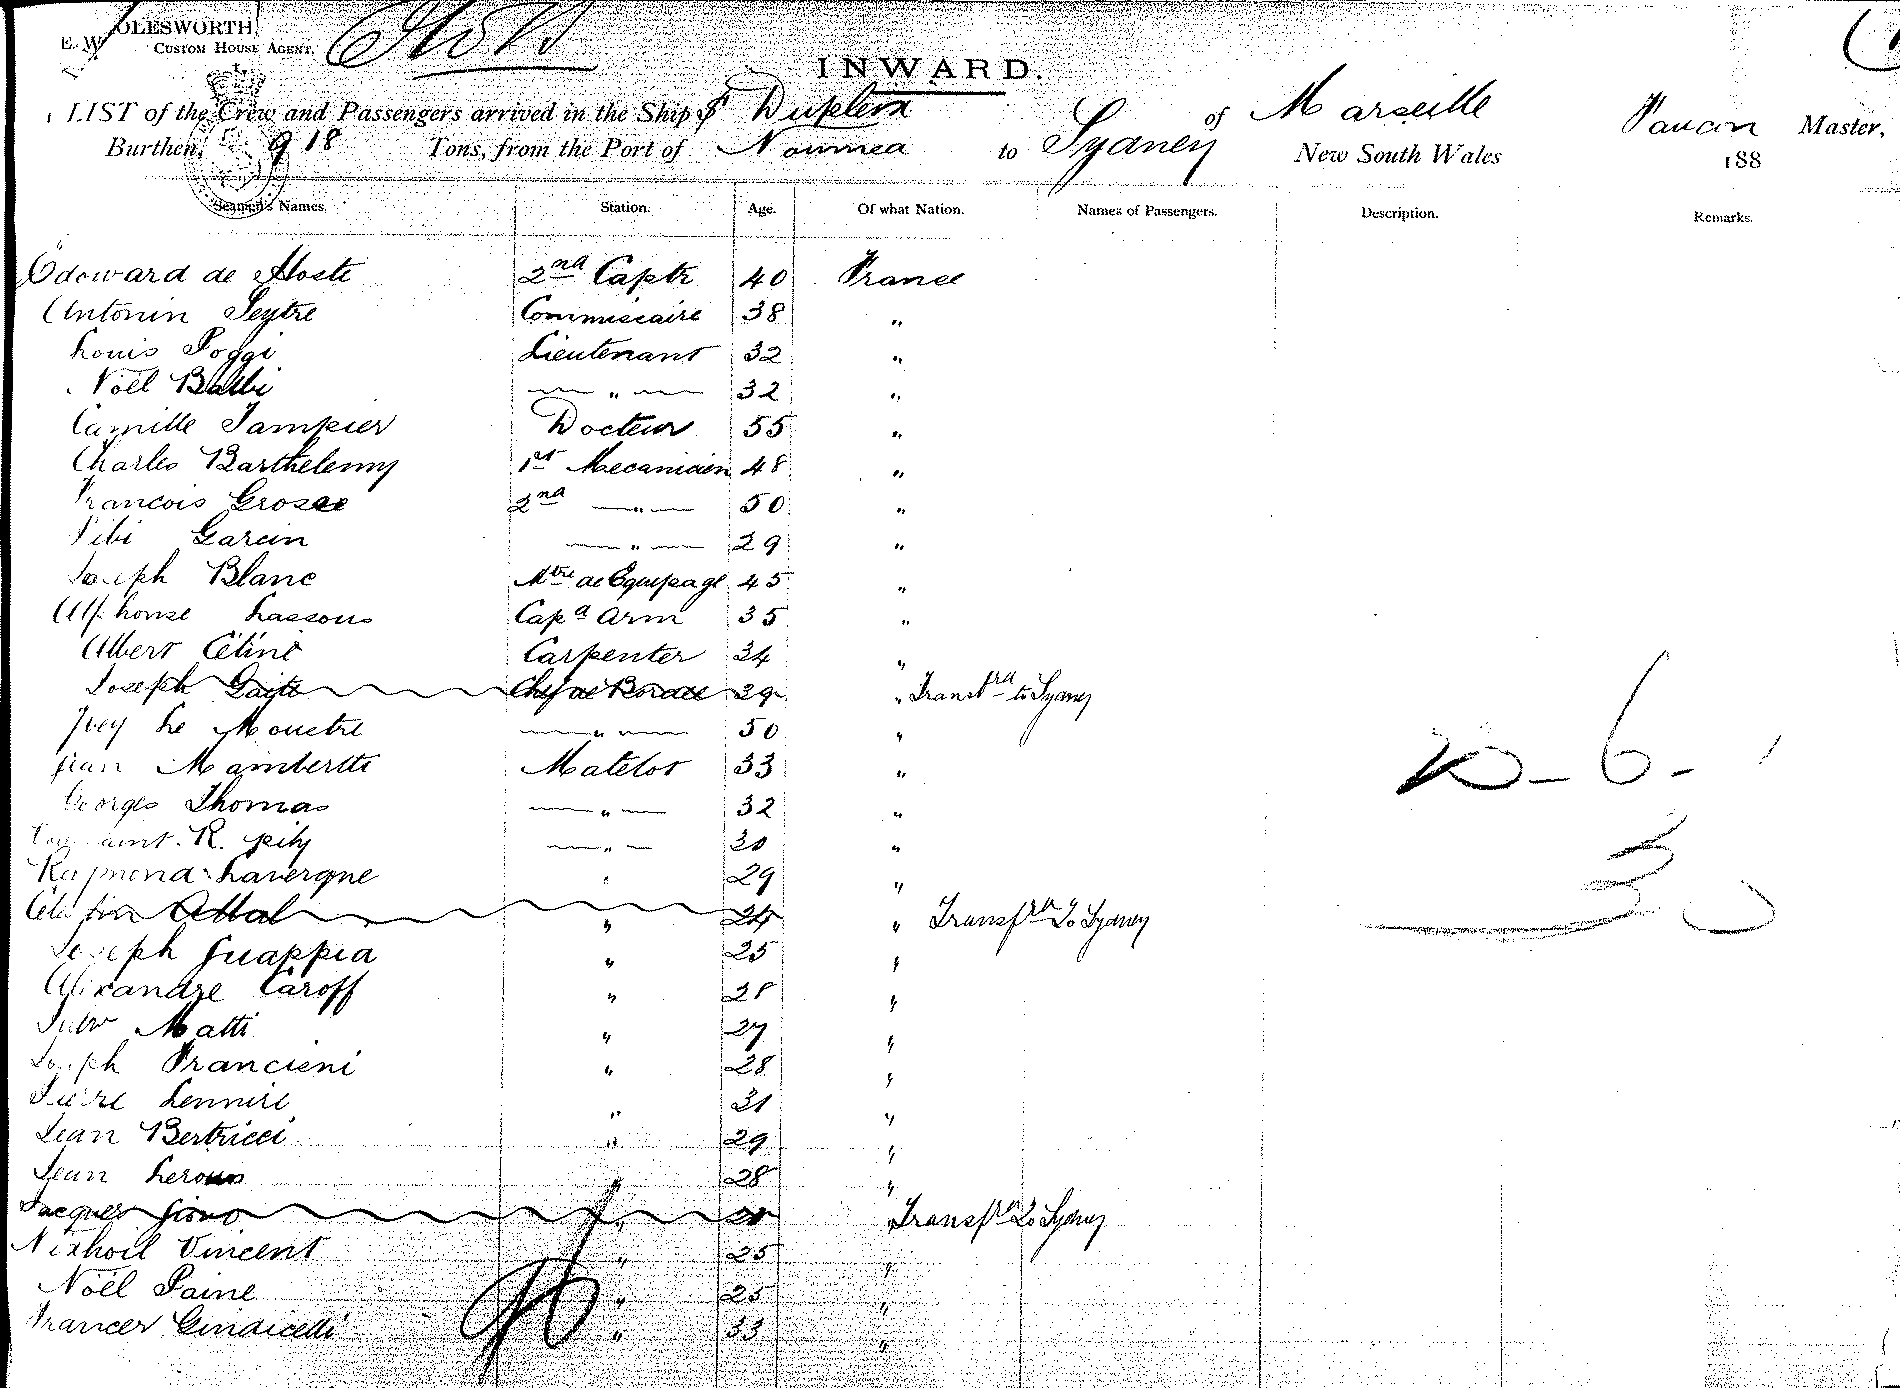 E. W. OLESWORTH,
CUSTOM HOUSE AGENT,
INWARD.
LIST of the Crew and Passengers arrived in the Ship Dupleix of Marseille Master,
Burthen, 918 Tons, from the Port of Noumea to Sydney New South Wales 188
Seamen's Names. Station. Age. Of what Nation. Names of Passengers. Description. Remarks.
Edouard de 2nd Captn 40 France
Antonin Seytre Commissaire 38 "
Louis Poggi Lieutenant 32 "
Noël Balbi " 32 "
Camille Tampier Docteur 55 "
Charles Barthelemy 1st Mecanicien 48 "
Francois Grosse 2nd " 50 "
Garcin " 29 "
Joseph Blanc Mtre de Equipage 45 "
Alphonse Lassous Cap d Arm 35 "
Albert Céline Carpenter 34 "
Joseph Chef de Bordee 39 " Transfrd to Sydney
Le Mouetre " 50 "
Jean Mambertte Matelot 33 "
Georges Thomas " 32 "
R. 30 "
Raymond Lavergne " 29 "
Attal " 24 " Transfrd To Sydney
Joseph Guappia " 25 "
Alixandre Caroff " 28 "
Matti " 27 "
Joseph Francieni " 28 "
Pierre Lennire " 31 "
Jean Bertricci " 29 "
Jean Leroux " 28 "
Jacques " " Transfrd To Sydney
Vincent " 25 "
Noël Paine " 25 "
Gindicelli " 33 "